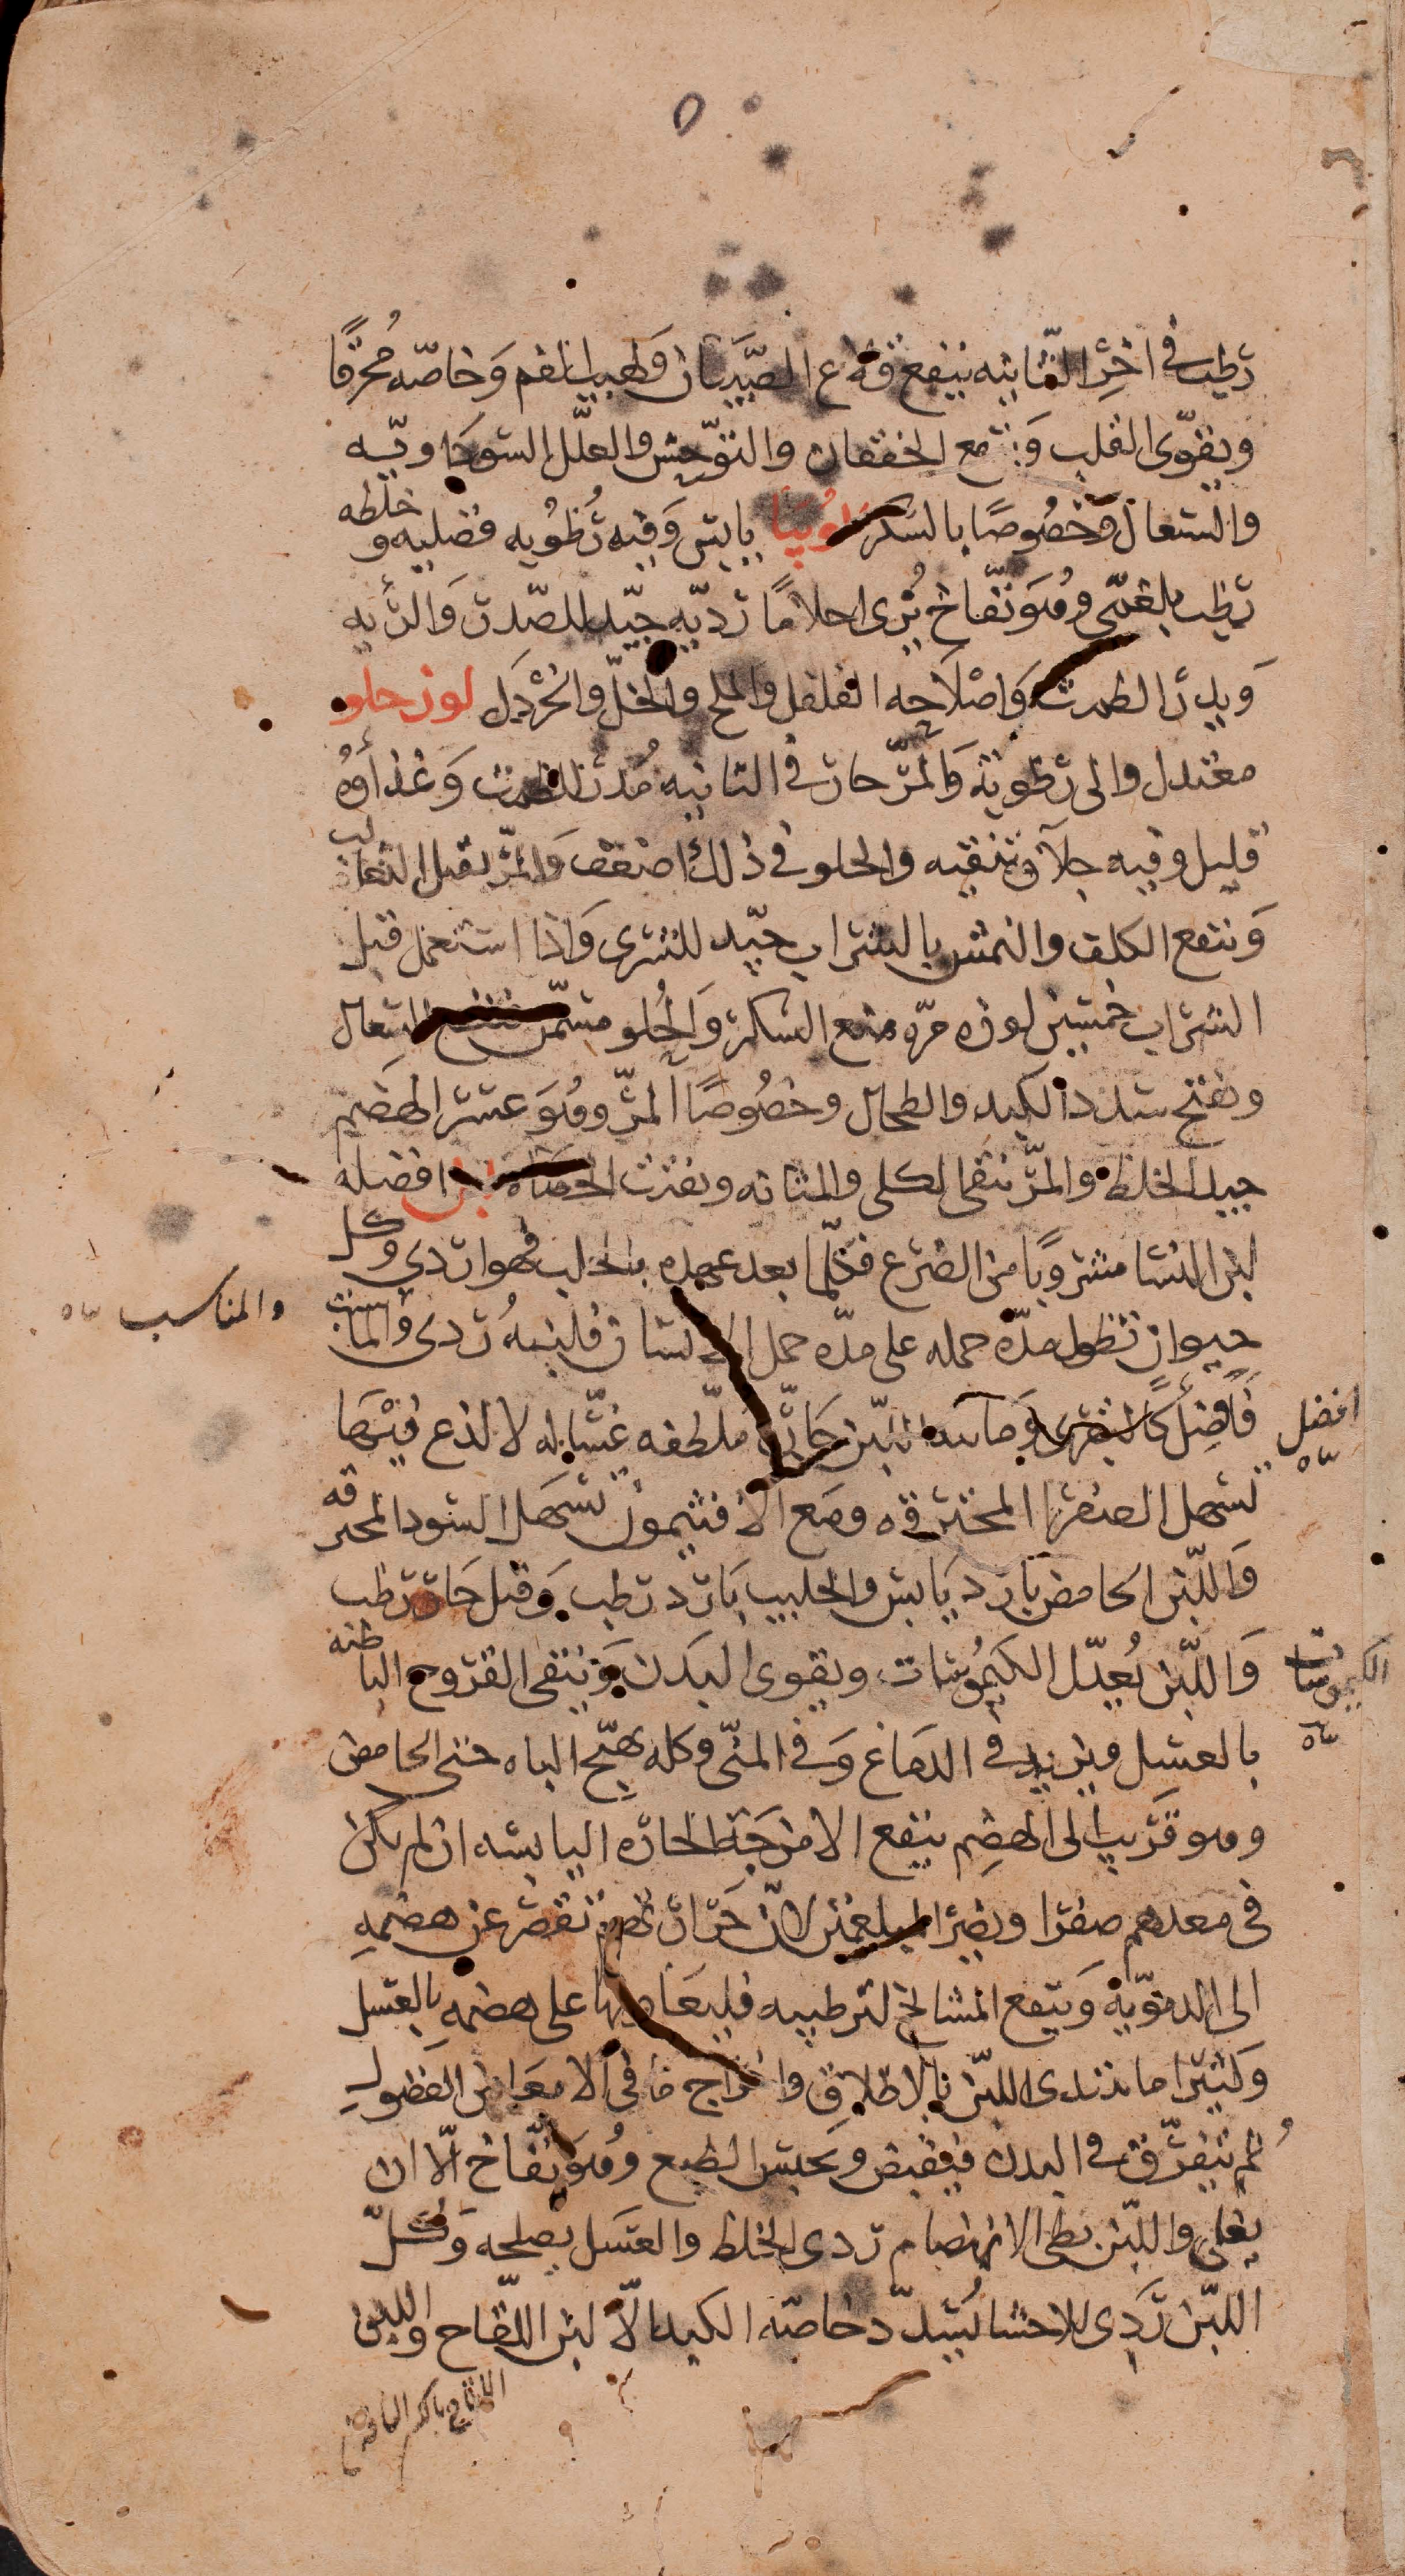 رطب في اخر الثانيه ينفع قلاع الصبيان وطيب الفم وخاصه محرقا
ويقوى القلب وينفع الخفقان والتوحش والعلل السوداويه
والسعال وخصوصا بالسكر لوبيا يابس وفيه رطوبه فضليه وخلطه
رطب بلغمى وهو نفاخ يرى احلاما رديه جيد للصدر والريه
ويدر الطمث واصلاحه الفلفل والملح والخل والخردل لوز حلو
معتدل والى رطوبة والمر حار في الثانيه مدر للطمث وغذاوه
قليل وفيه جلا وتنقيه والحلو في ذلك اضعف والمر يقتل الثعالب
وينفع الكلف والنمش بالشراب جيد للشرى واذا استعمل قبل
الشراب خمسين لوزه مره منع السكر والحلو مسمن ينفع السعال
ويفتح سدد الكبد والطحال وخصوصا المر وهو عسر الهضم
جيد الخلط والمر ينقى الكلى والمثانه ويفتت الحصاه لبن افضله
لبن النسا مشروبا من الضرع فكلما بعد عهده بالحلب فهو ردي وكل
حيوان تطول مدة حمله على مدة حمل الانسان فلبنه ردى والمناسب
والمناسب
فافضل كالبقرى وماييه اللبن حاره ملطفه غساله لا لذع فيها
افضل
تسهل الصفرا المحترقه ومع الافثيمون تسهل السودا المحرقه
واللبن الحامض بارد يابس والحليب بارد رطب وقيل حار رطب
واللبن يعدل الكيموسات ويقوى البدن وينقى القروح الباطنه
الكيموسات
بالعسل ويزيد في الدماغ وفي المنى وكله يهيج الباه حتى الحامض
وهو قريب الى الهضم ينفع الامزجة الحاره اليابسه ان لم يكن
في معدهم صفرا ويضر المبلغمين لان حرارتهم تقصر عن هضمه
الى الدمويه وينفع المشايخ لترطيبه فليعاونوا على هضمه بالعسل
وكثيرا ما يبتدى اللبن بالاطلاق واخراج ما في الامعا من الفضول
ثم يتفرق في البدن فيقبض ويحبس الطبع وهو نفاخ الا ان
يغلى واللبن بطى الانهضام ردى الخلط والعسل يصلحه وكل
اللبن ردى للاحشا يسدد خاصه الكبد الا لبن اللقاح واللبن